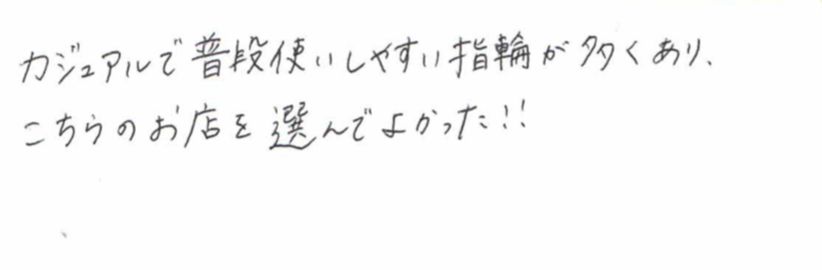 カジュアルで普段使いしやすい指輪が多くあり、
こちらのお店を選んでよかった!!